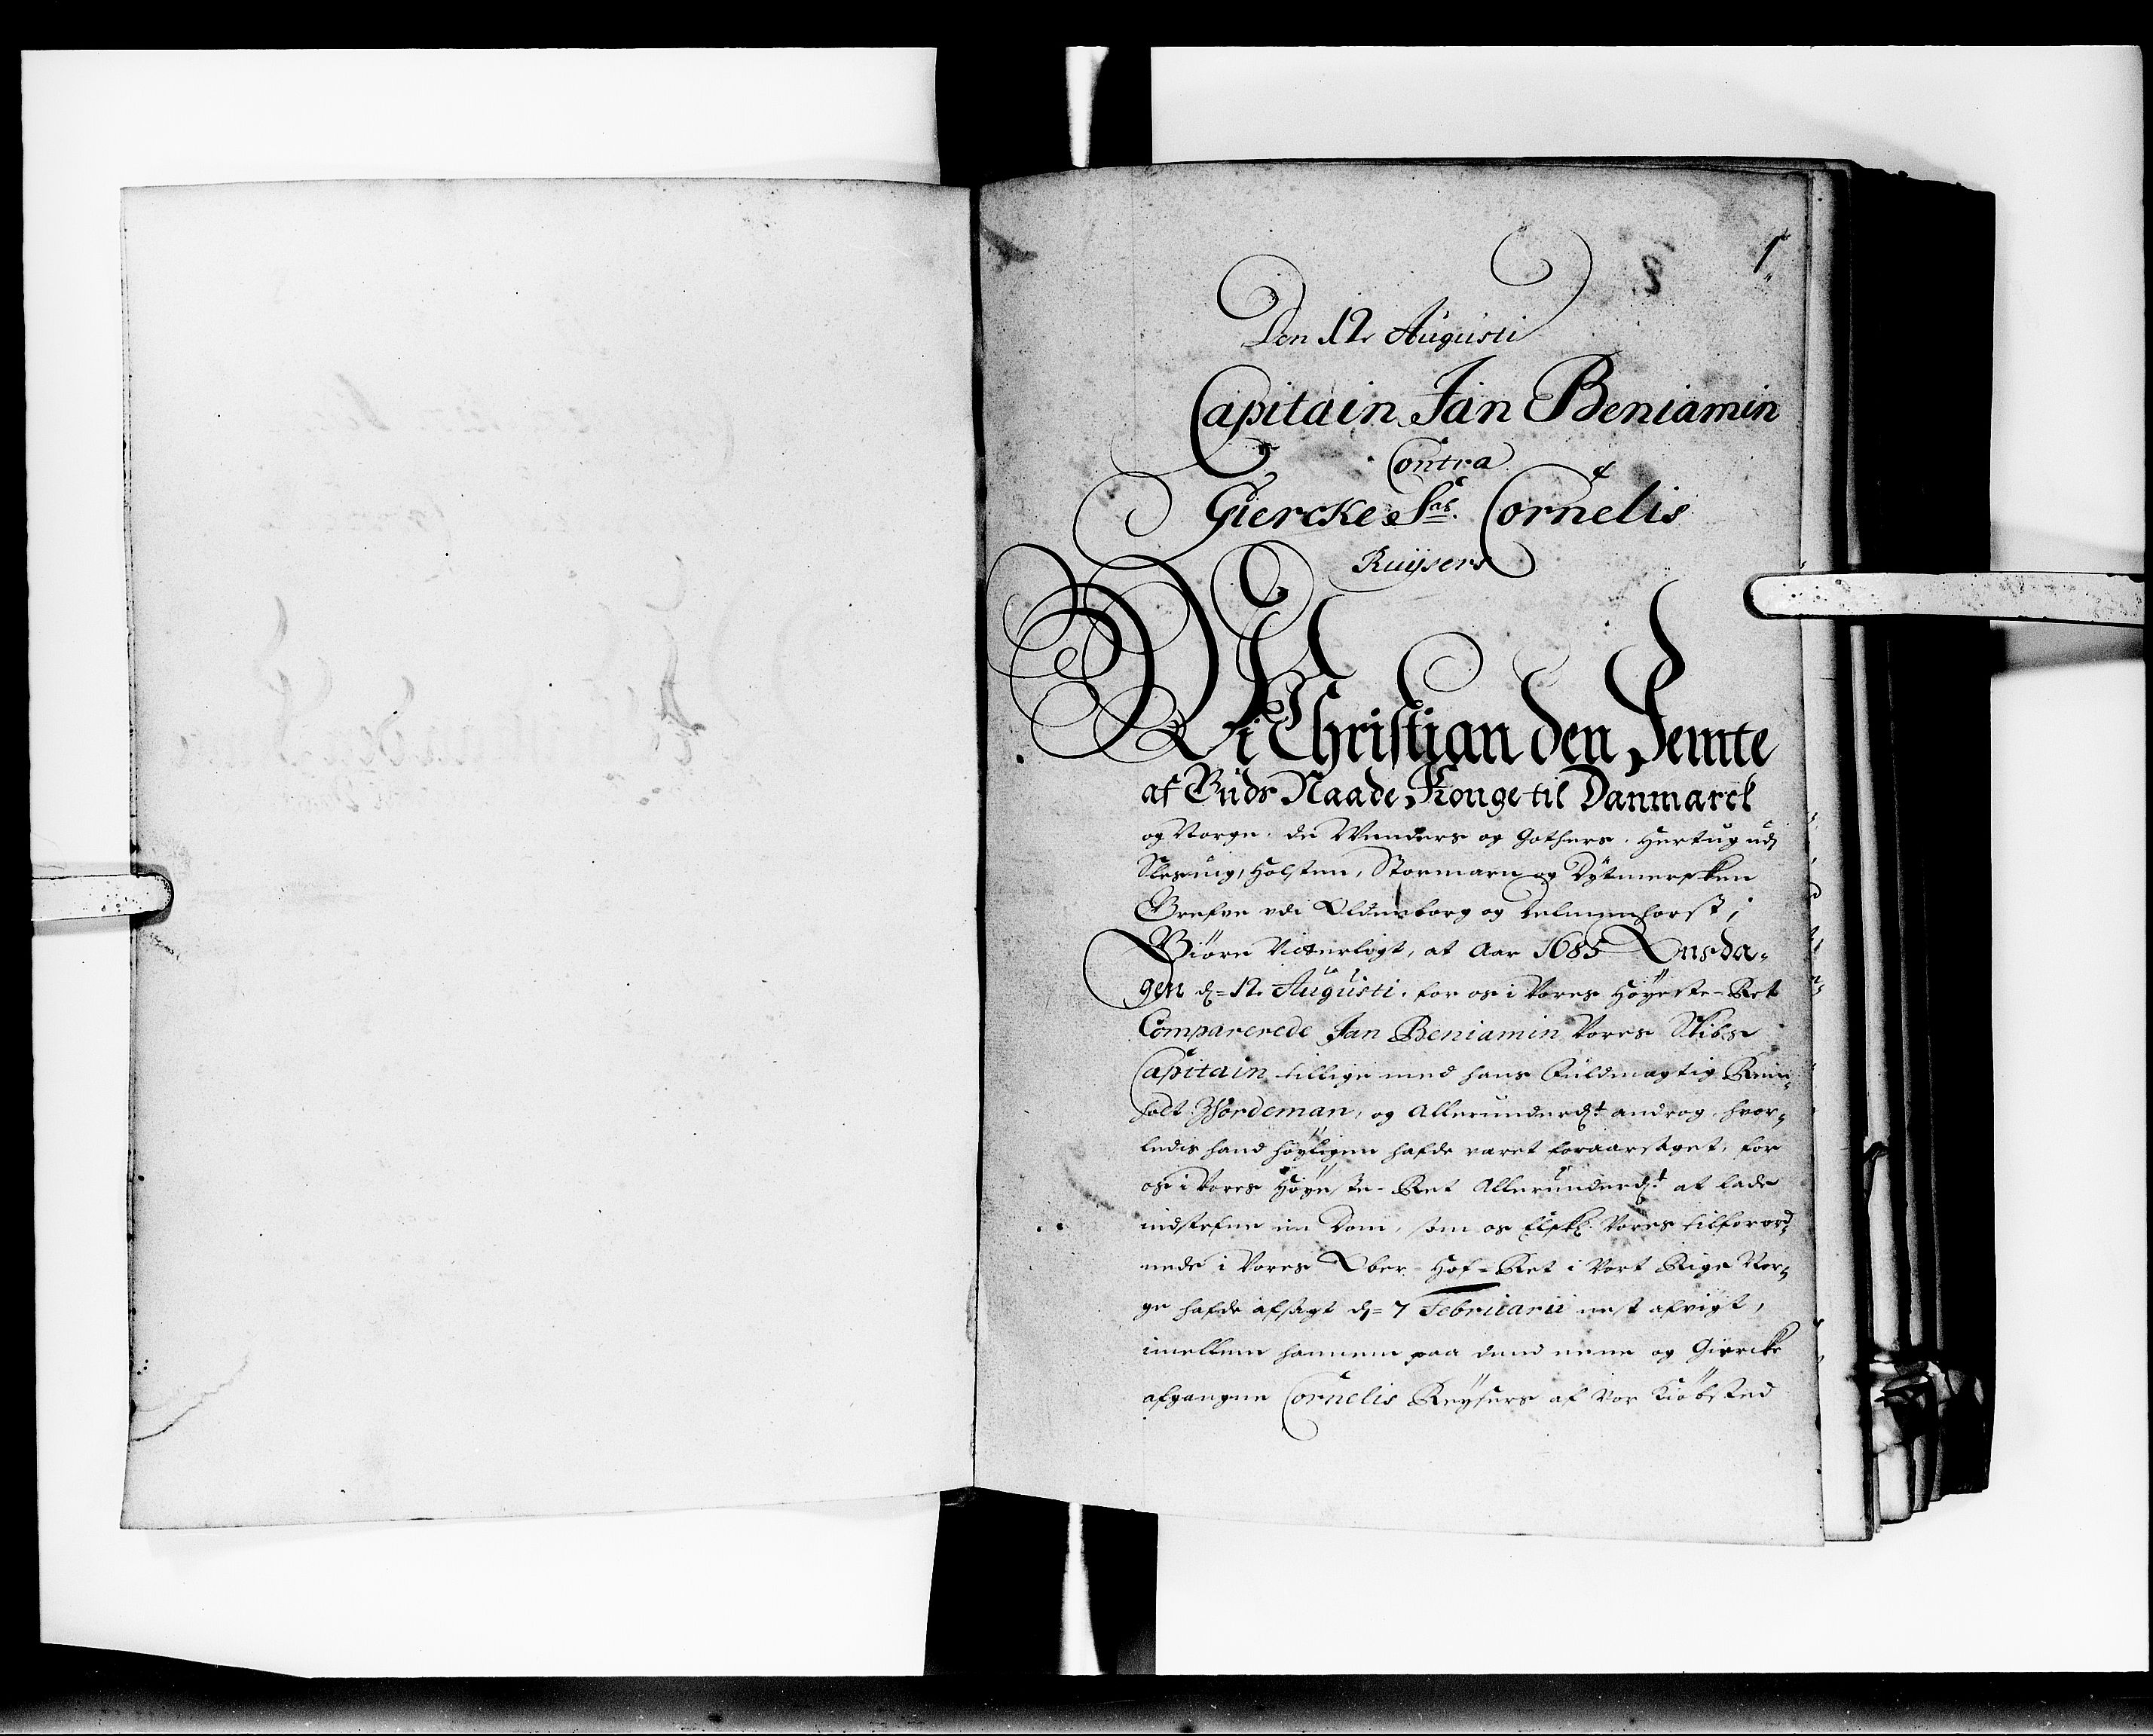 1
Den 12 Augusti
Capitain Jan Beniamin
Contra
Giercke Sal. Cornelis
Ruijsers
Wi Christian den Femte
af Guds Naade Konge til Danmarck
og Norge, de Wenders og Gothers, Hertug udj
Slesuig, Holsten, Stormarn og Dytmersken
Grefve udi Oldenborg og Delmenhorst;
Giøre Vitterligt, at Aar 1685 Onsda-
gen d= 12 Augusti, for os i Vores Høyeste-Ret
Comparerede Jan Beniamin Vores Skibs
Capitain tillige med hans Fuldmagtig Rein-
holt Hordeman, og Allerunderd:t androg, hvor-
ledis hand høyligen hafde varet foraarsaget, for
os i Vores Høyeste-Ret Allerunderd:t at lade
indstefne en Dom, som os Elskl. Vores tilforord-
nede i Vores Ober-Hof-Ret i Vort Rige Nor-
ge hafde afsagt d= 7 Februarii nest afvigt,
imellem hannem paa dend eene og Giercke
afgangne Cornelis Reysers af Vor Kiøbsted